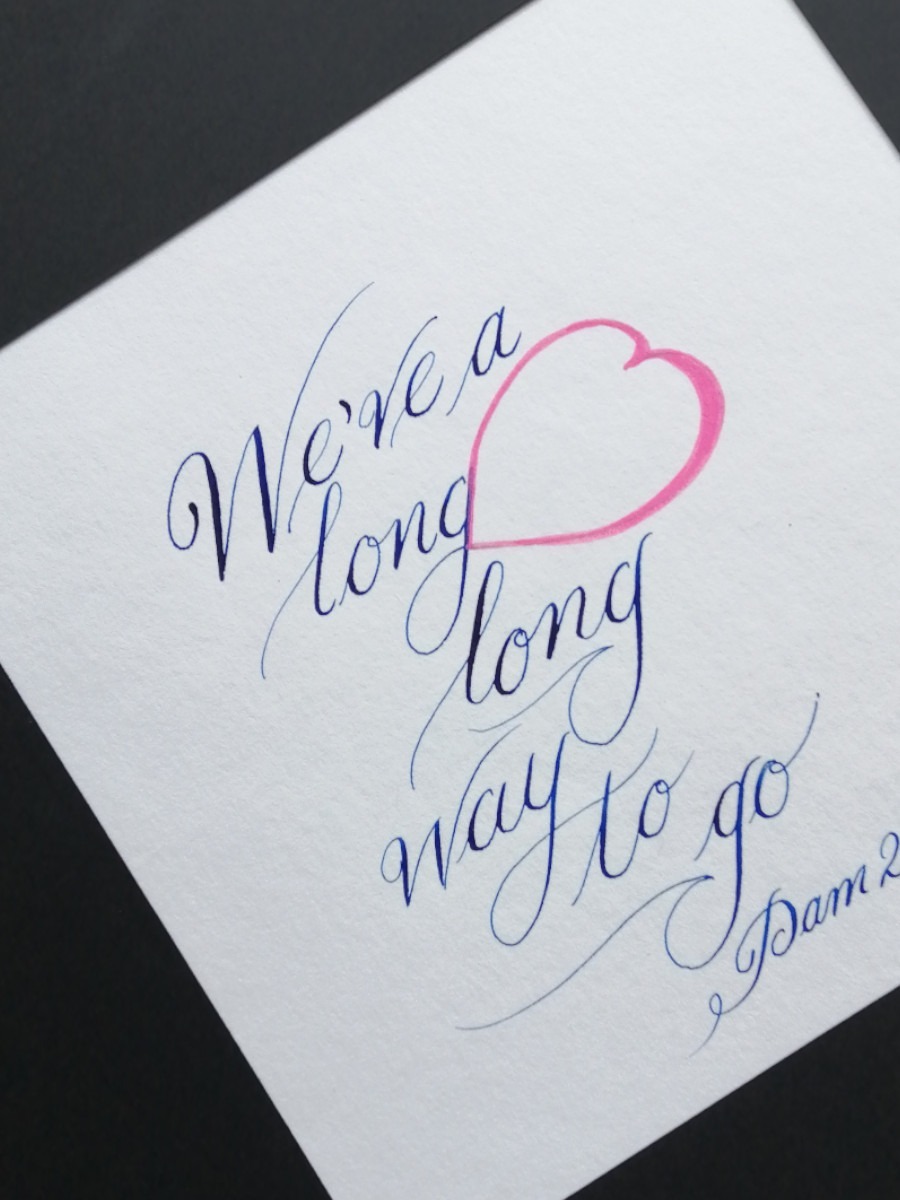 We've a
long
long
way to go
Dam 2